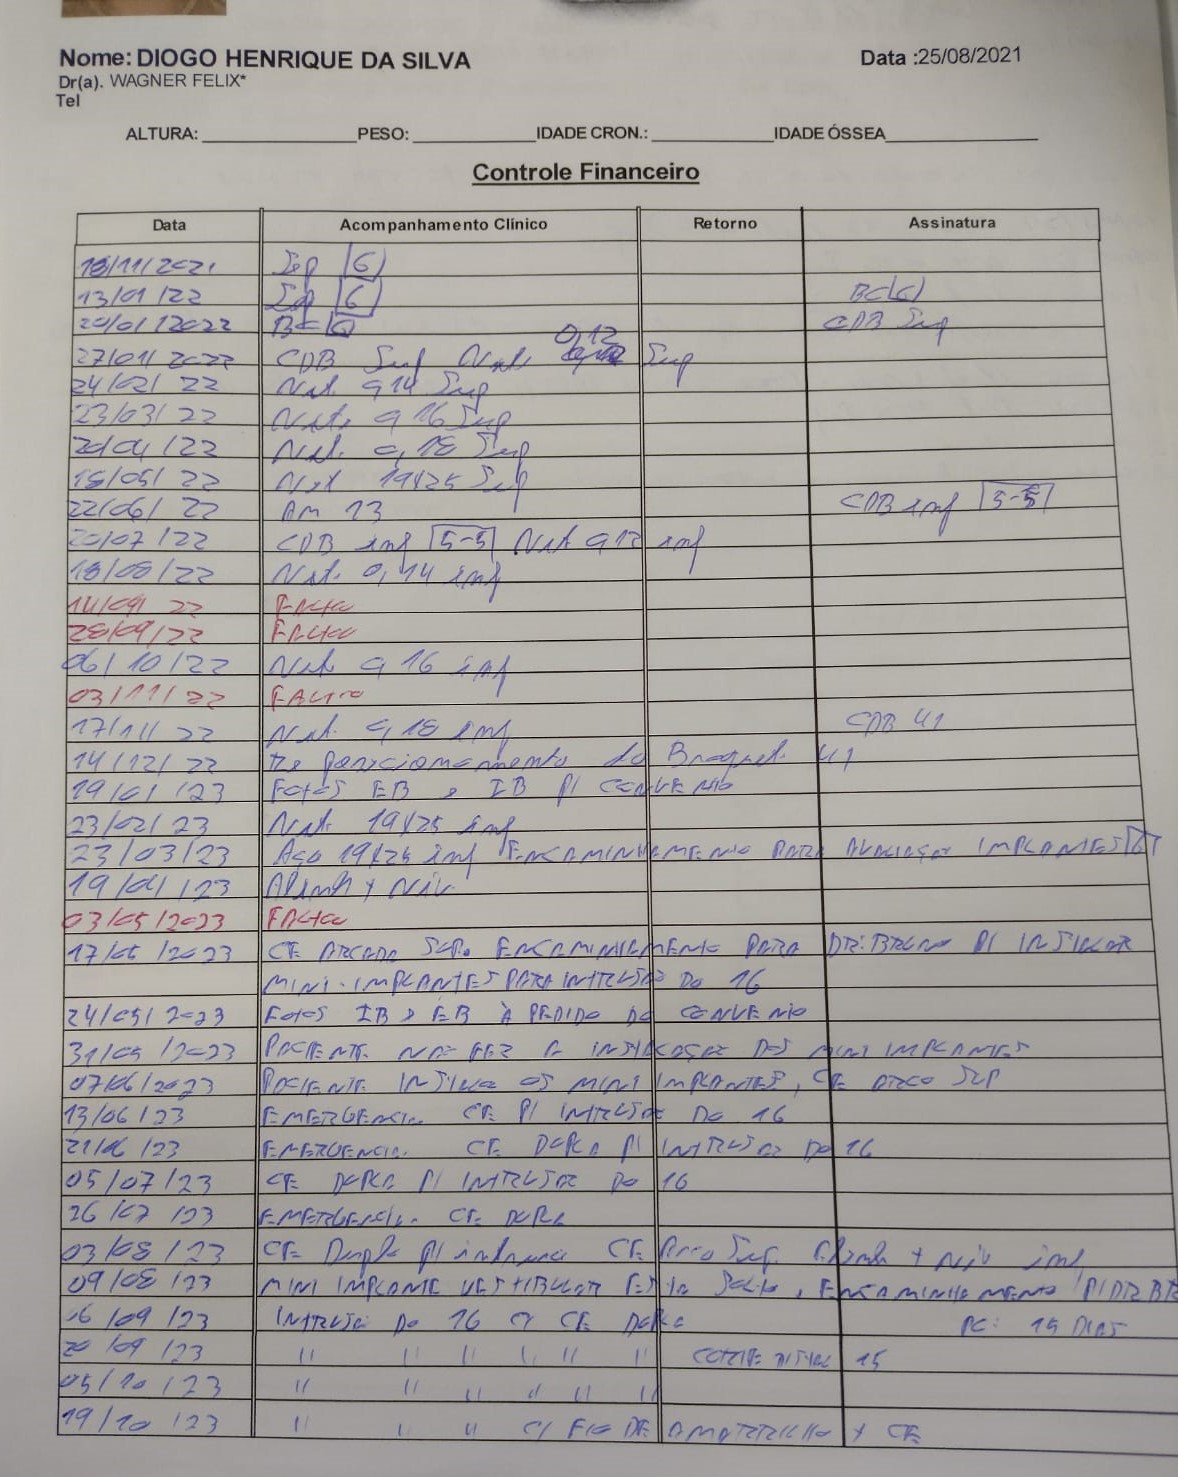 Nome: DIOGO HENRIQUE DA SILVA Data :25/08/2021
Dr(a). WAGNER FELIX*
Tel
ALTURA: PESO: IDADE CRON.: IDADE ÓSSEA
Controle Financeiro
Data Acompanhamento Clínico Retorno Assinatura
18/11/2021 Sup 6
13/01/22 Sup 6 BC 6
20/01/2022 BC 6 CDB Sup
27/01/2022 CDB Sup Nit. 0,12 Sup
24/02/22 Nit. 0,14 Sup
23/03/22 Nit. 0,16 Sup
20/04/22 Nit. 0,18 Sup
18/05/22 Nit 19x25 Sup
22/06/22 Am 13 CDB inf 5-5
20/07/22 CDB inf 5-5 Nit 0,12 inf
18/08/22 Nit. 0,14 inf
14/09/22 Faltou
28/09/22 Faltou
06/10/22 Nit 0,16 inf
03/11/22 FALTOU
17/11/22 Nit. 0,18 inf CDB 41
14/12/22 Re posicionamento do Braquet 41
19/01/23 Fotos EB e IB P/ CONVENIO
23/02/23 Nit. 19x25 inf
23/03/23 Aço 19x25 inf ENCAMINHAMENTO PARA AVALIAÇÃO IMPLANTES
19/04/23 Alinh + Niv.
03/05/2023 Faltou
17/05/2023 CE ARCADA SUP. ENCAMINHAMENTO PARA DR. BRUNO P/ INSTALAR
MINI-IMPLANTES PARA INTRUSÃO DO 16
24/05/2023 Fotos IB e EB À PEDIDO DO CONVENIO
31/05/2023 PACIENTE NÃO FEZ A INSTALAÇÃO DOS MINI IMPLANTES
07/06/2023 PACIENTE INSTALOU OS MINI IMPLANTES, CE ARCO SUP
13/06/23 EMERGENCIA. CE P/ INTRUSÃO DO 16
21/06/23 EMERGENCIA. CE DUPLA P/ INTRUSÃO DO 16
05/07/23 CE DUPLA P/ INTRUSÃO DO 16
26/07/23 EMERGENCIA. CE DUPLA
03/08/23 CE Dupla p/ CE Arco Sup. Alinh + Niv inf
09/08/23 MINI IMPLANTE VESTIBULAR ESTA Solto, ENCAMINHAMENTO P/ DR BR
06/09/23 INTRUSÃO DO 16 C/ CE DUPLA PC: 15 DIAS
20/09/23 " " " " " " DISTAL 15
05/10/23 " " " " " "
19/10/23 " " " C/ FIO DE AMARRILHO + CE